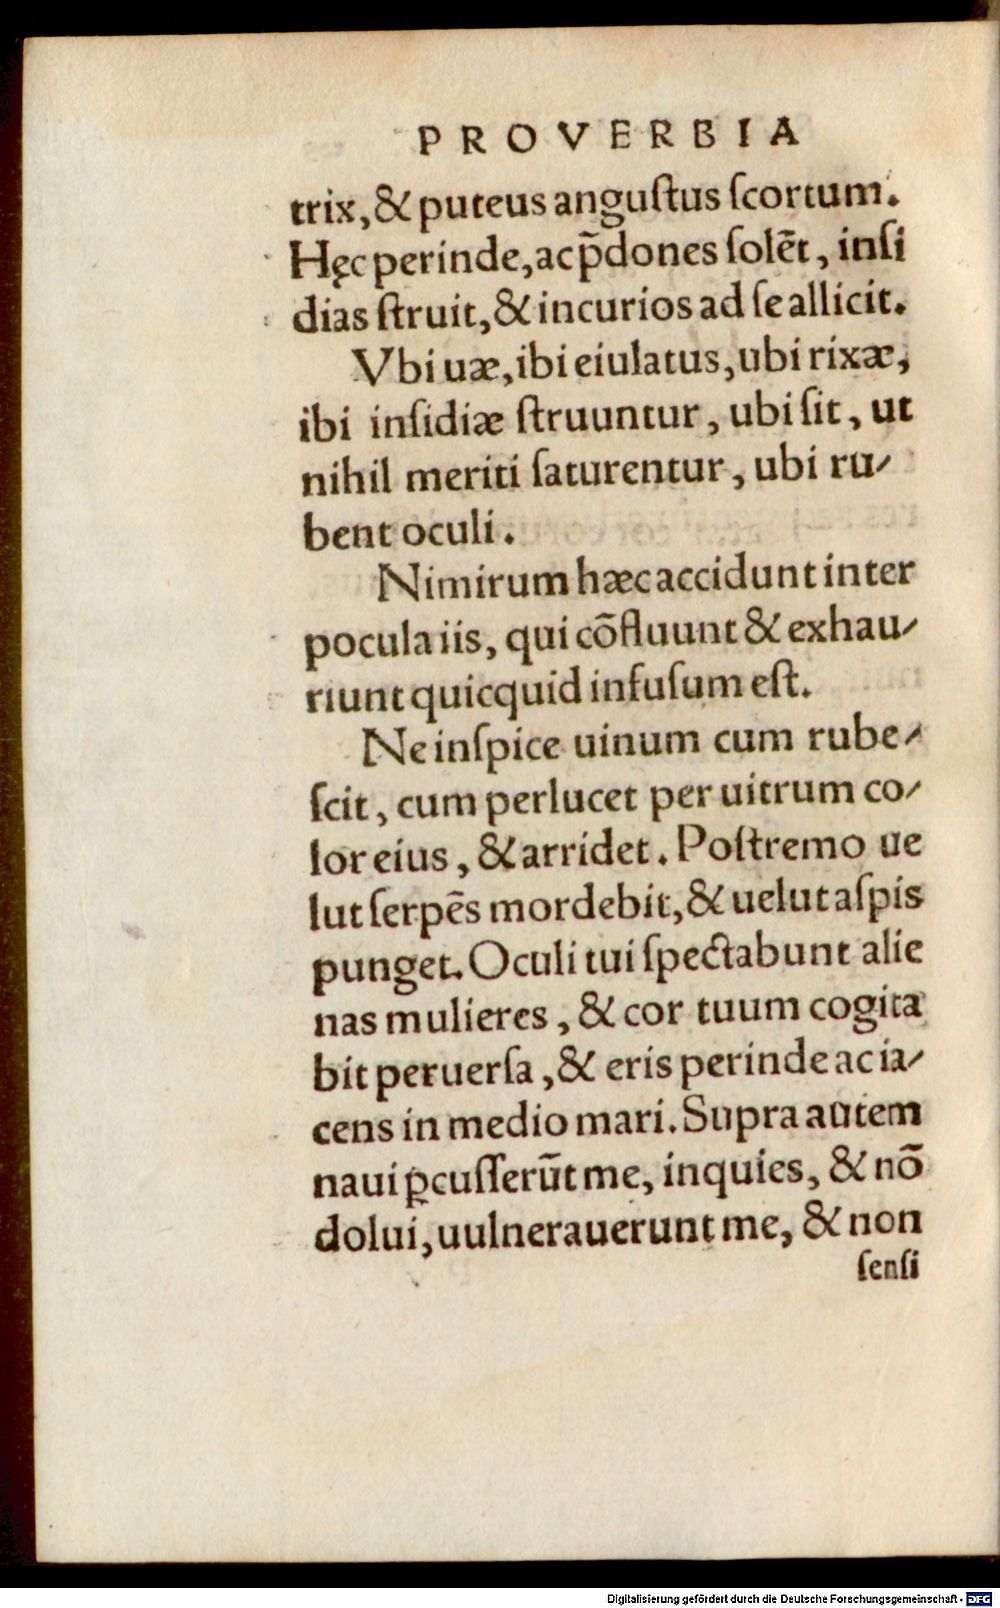 PROVERBIA
trix, & puteus anguſtus ſcortum.
Hęc perinde, ac p̄dones ſolēt, inſi
dias ſtruit, & incurios ad ſe allicit.
Vbi uæ, ibi eiulatus, ubi rixæ,
ibi inſidiæ ſtruuntur, ubi ſit, ut
nihil meriti ſaturentur, ubi ru⸗
bent oculi.
Nimirum hæc accidunt inter
pocula iis, qui cōfluunt & exhau⸗
riunt quicquid infuſum eſt.
Ne inſpice uinum cum rube⸗
ſcit, cum perlucet per uitrum co⸗
lor eius, & arridet. Poſtremo ue
lut ſerpēs mordebit, & uelut aſpis
punget. Oculi tui ſpectabunt alie
nas mulieres, & cor tuum cogita
bit peruerſa, & eris perinde ac ia⸗
cens in medio mari. Supra autem
naui ꝑcuſſerūt me, inquies, & nō
dolui, uulnerauerunt me, & non
ſenſi
Digitalisierung gefördert durch die Deutsche Forschungsgemeinschaft - DFG